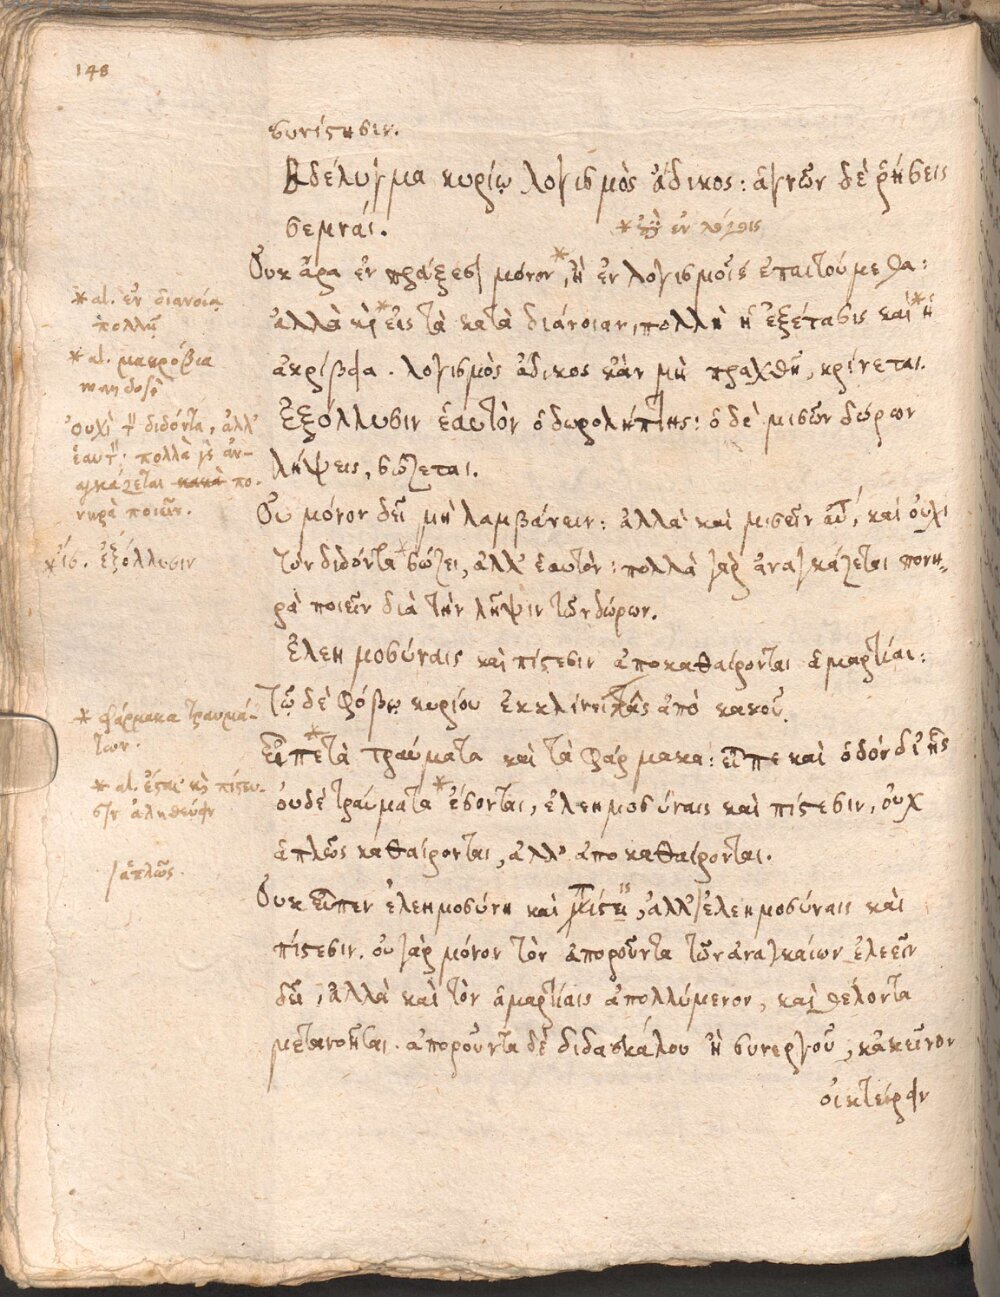 148
συνίστησιν.
Βδέλυγμα κυρίῳ λογισμὸς ἄδικος: ἁγνῶν δὲ ῥήσεις
σεμναί.
* ἐν λόγοις
Οὐκ ἄρα ἐν πράξεσι μόνον*, ἢ ἐν λογισμοῖς ἀπαιτούμεθα:
ἀλλὰ καὶ *εἰς τὰ κατὰ διάνοιαν, πολλὴ ἡ ἐξέτασις καὶ *ἡ
ἀκρίβεια. λογισμὸς ἄδικος κἂν μὴ πραχθῇ, κρίνεται.
Ἐξόλλυσιν ἑαυτὸν ὁ δωρολήπτης: ὁ δὲ μισῶν δώρων
λήψεις, σώζεται.
Οὐ μόνον δεῖ μὴ λαμβάνειν: ἀλλὰ καὶ μισεῖν αὐτ, καὶ οὐχὶ
τὸν διδόντα* σώζει, ἀλλ' ἑαυτόν: πολλὰ γὰρ ἀναγκάζεται πονη-
ρὰ ποιεῖν διὰ τὴν λῆψιν τῶν δώρων.
Ἐλεημοσύναις καὶ πίστεσιν ἀποκαθαίρονται ἁμαρτίαι:
τῷ δὲ φόβῳ κυρίου ἐκκλίνει πᾶς ἀπὸ κακοῦ.
Εἶπε *τὰ τραύματα καὶ τὰ φάρμακα: εἶπε καὶ ὁδὸν δι' ἧς
οὐδὲ τραύματα *ἔσονται, ἐλεημοσύναις καὶ πίστεσιν, οὐχ
ἁπλῶς καθαίρονται, ἀλλ' ἀποκαθαίρονται.
Οὐκ εἶπεν ἐλεημοσύνη καὶ πίστει, ἀλλ' /ἐλεημοσύναις καὶ
πίστεσιν. οὐ γὰρ μόνον τὸν ἀποροῦντα τῶν ἀναγκαίων ἐλεεῖν
δεῖ, ἀλλὰ καὶ τὸν ἁμαρτίαις ἀπολλύμενον, καὶ θέλοντα
μετανοῆσαι. ἀποροῦντα δὲ διδασκάλου ἢ συνεργοῦ, κἀκεῖνον
οἰκτείρειν
* al. ἐν διανοίᾳ
πολλῇ
* al. μακρόβια
mendosè
οὐχὶ τ διδόντα, ἀλλ'
ἑαυτ: πολλὰ γὰρ ἀν-
αγκάζεται κακὰ πο-
νηρὰ ποιεῖν.
ἐξόλλυσιν
* φάρμακα τραυμά-
των.
* al. ἔσται καὶ πίστεσιν ἀληθεύειν
/ἁπλῶς.